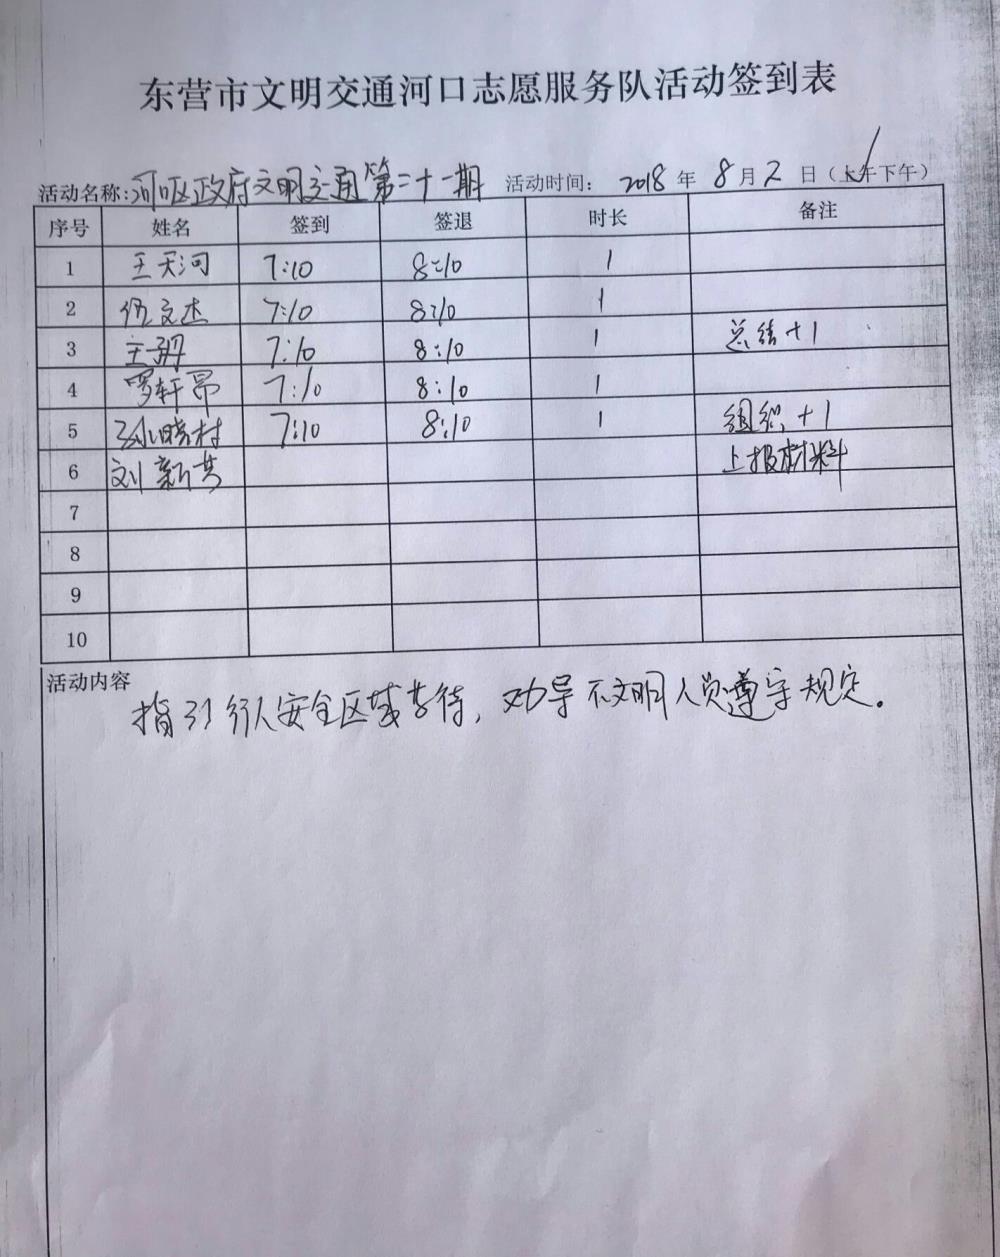 东营市文明交通河口志愿服务队活动签到表
活动名称:河口区政府文明交通第二十一期 活动时间: 2018 年 8 月 2 日(上午下午)
序号 姓名 签到 签退 时长 备注
1 王天河 7:10 8:10 1
2 伍文杰 7:10 8:10 1
3 王玥 7:10 8:10 1 总结+1
4 罗轩昂 7:10 8:10 1
5 孙晓村 7:10 8:10 1 组织+1
6 刘新 上报材料
7
8
9
10
活动内容
指引行人安全区域等待,劝导不文明人员遵守规定。